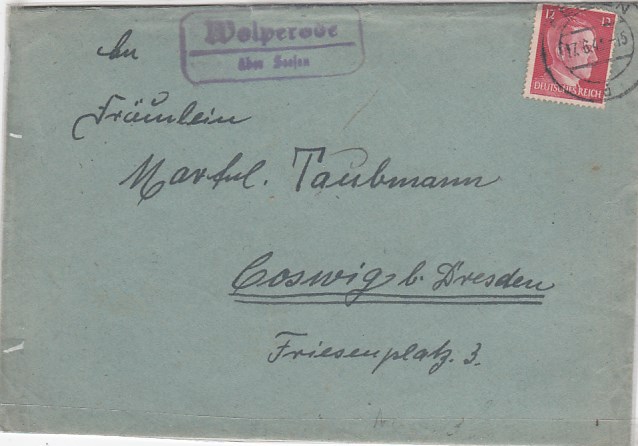 Wolperode
über Seesen
12 12
DEUTSCHES REICH
17.6.4
An
Fräulein
Taubmann
Coswig b. Dresden
Friesenplatz. 3.